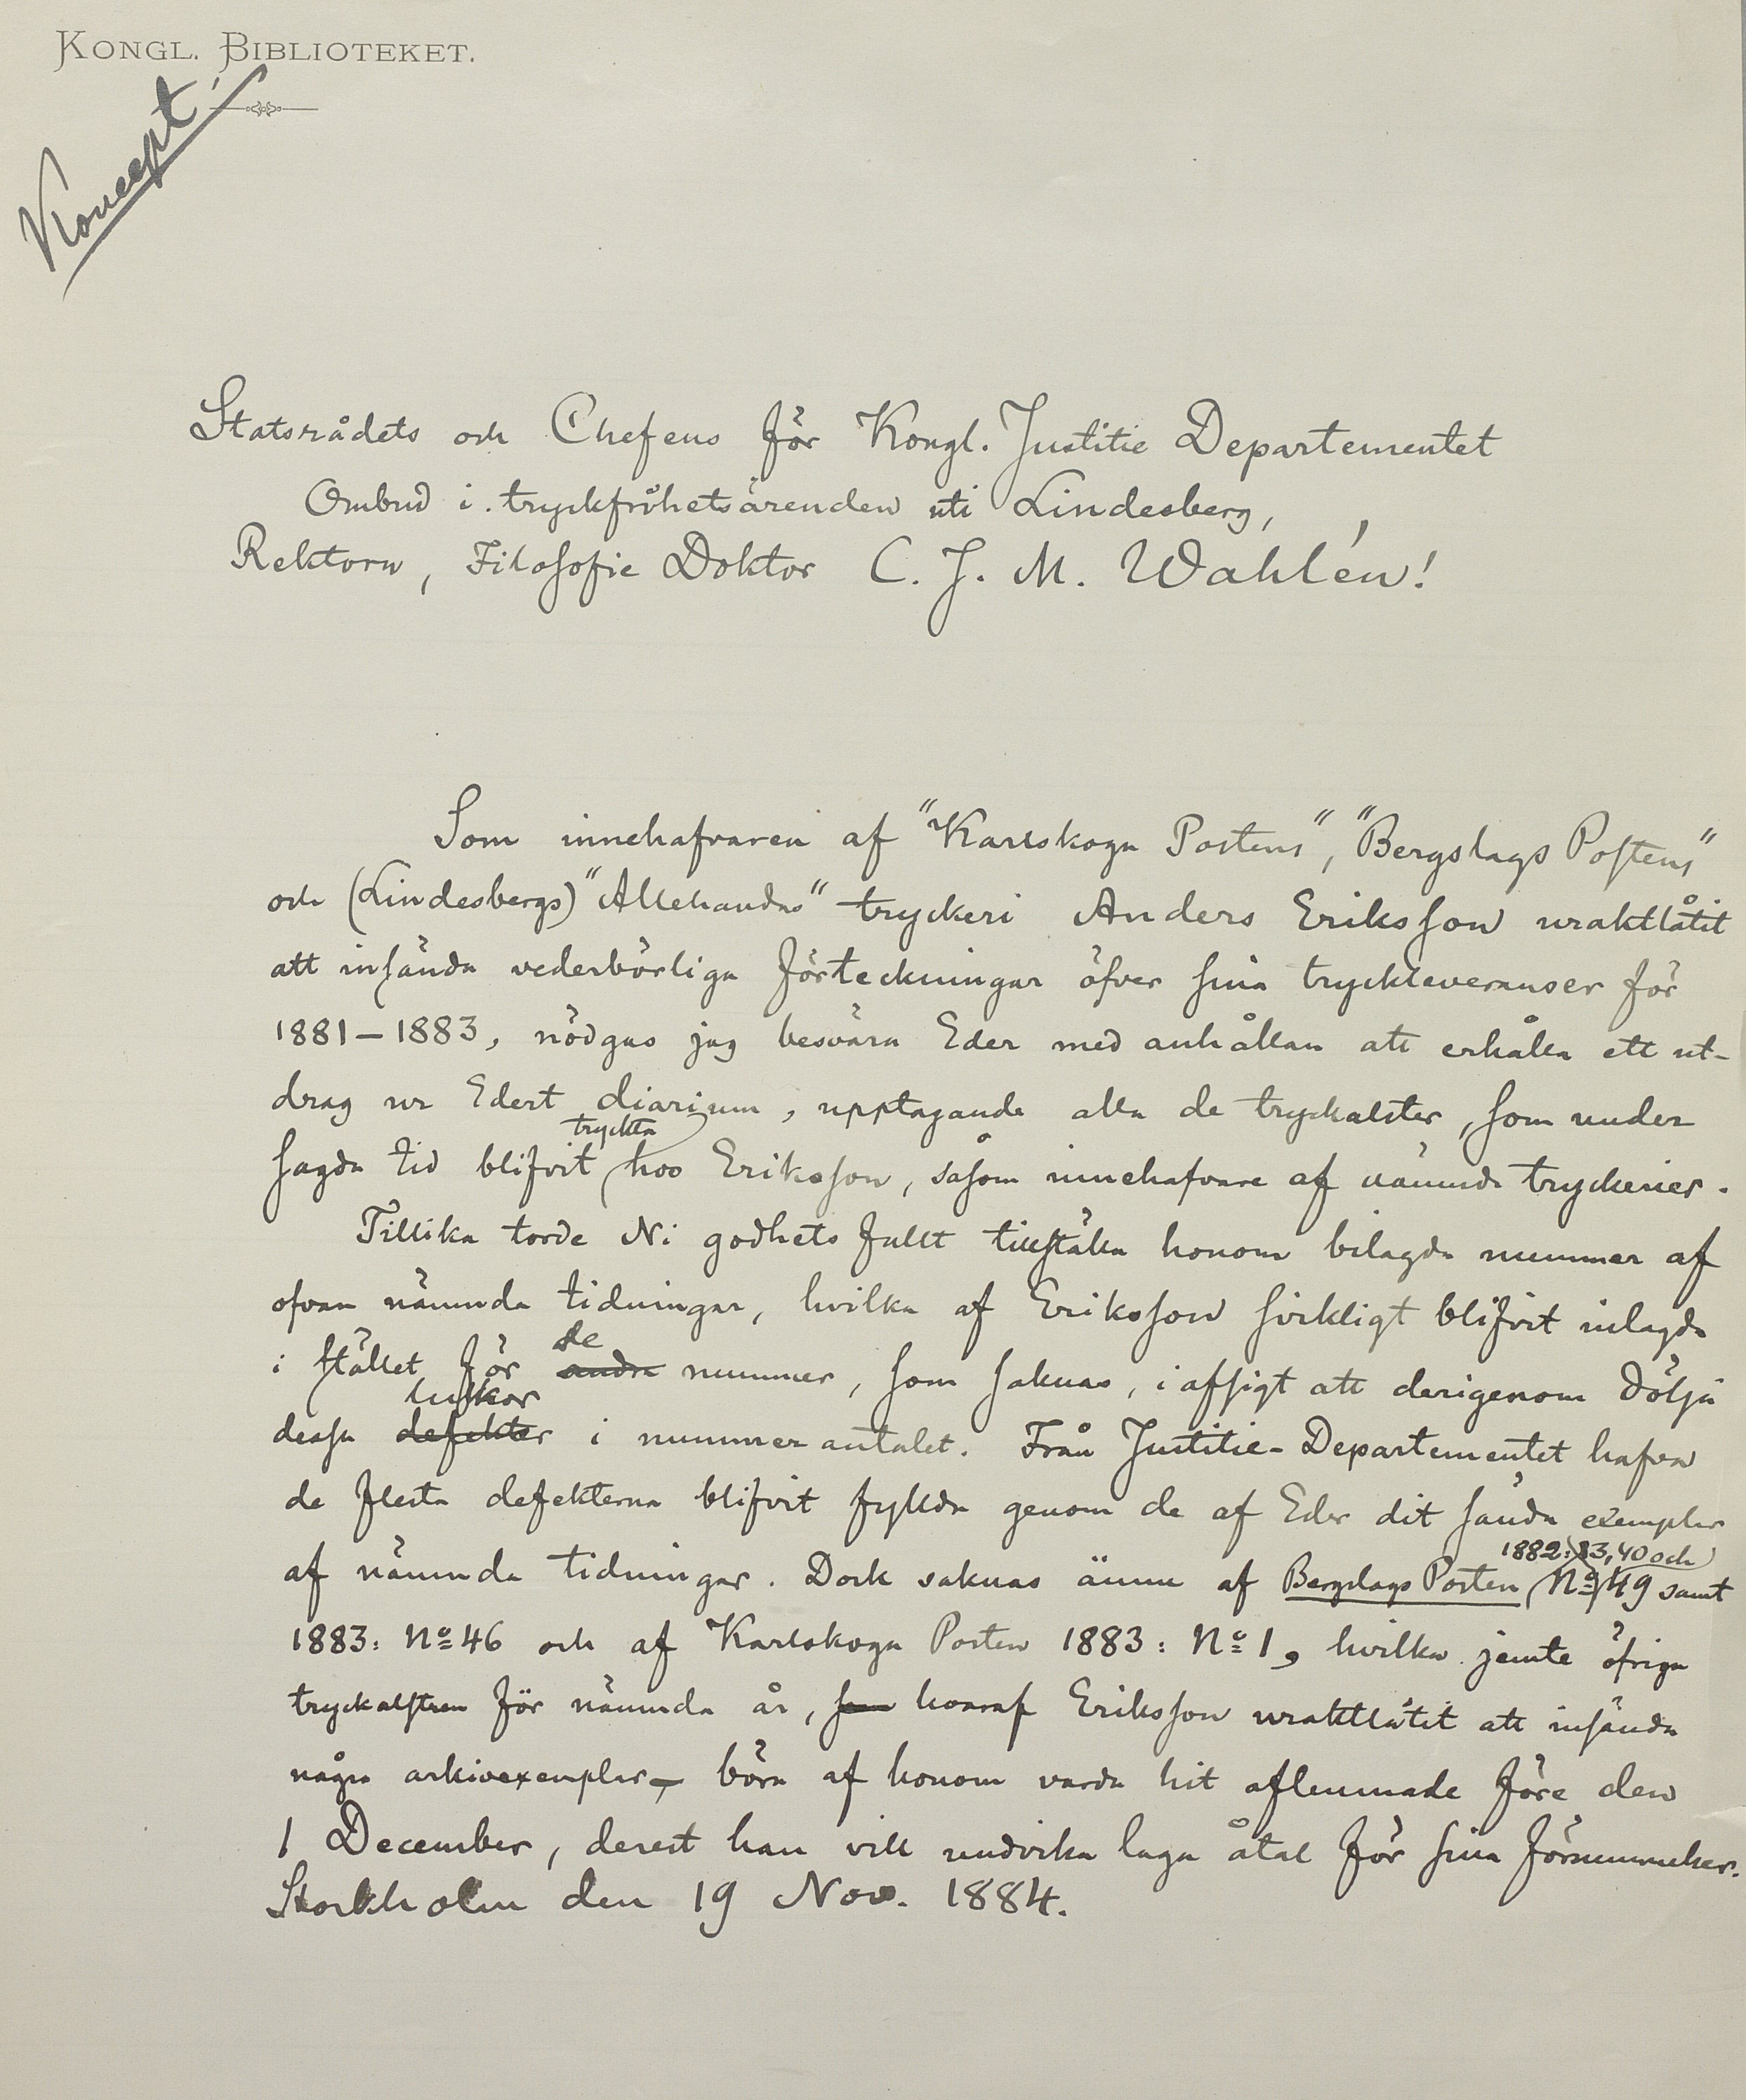 KONGL. BIBLIOTEKET.
Koncept.
Statsrådets och Chefens för Kongl. Justitie Departementet
Ombud i tryckfrihetsärenden uti Lindesberg,
Rektorn, Filosofie Doktor C. J. M. Wahlén!
Som innehafvaren af "Karlskoga Postens", "Bergslags Postens"
och (Lindesbergs) "Allehandas" tryckeri Anders Eriksson uraktlåtit
att insända vederbörliga förteckningar öfver sina tryckleveranser för
1881–1883, nödgas jag besvära Eder med anhållan att erhålla ett ut-
drag ur Edert diarium, upptagande alla de tryckalster, som under
tryckta
sagda tid blifvit hos Eriksson, såsom innehafvare af nämnda tryckerier.
Tillika torde Ni godhets fullt tillställa honom bilagda nummer af
ofvan nämnda tidningar, hvilka af Eriksson sirkligt blifvit inlagda
de
i stället för andra nummer, som saknas, i afsigt att derigenom dölja
luckor
dessa defekter i nummerantalet. Från Justitie-Departementet hafva
de flesta defekterna blifvit fyllda genom de af Eder dit sända exemplar
1882: 13, 40 och
af nämnda tidningar. Dock saknas ännu af Bergslags Posten No 49 samt
1883: No 46 och af Karlskoga Posten 1883: No 1, hvilka jemte öfriga
tryckalstren för nämnda år, som hvaraf Eriksson uraktlåtit att insända
några arkivexemplar, böra af honom varda hit aflemnade före den
1 December, derest han vill undvika laga åtal för sina försummelser.
Stockholm den 19 Nov. 1884.